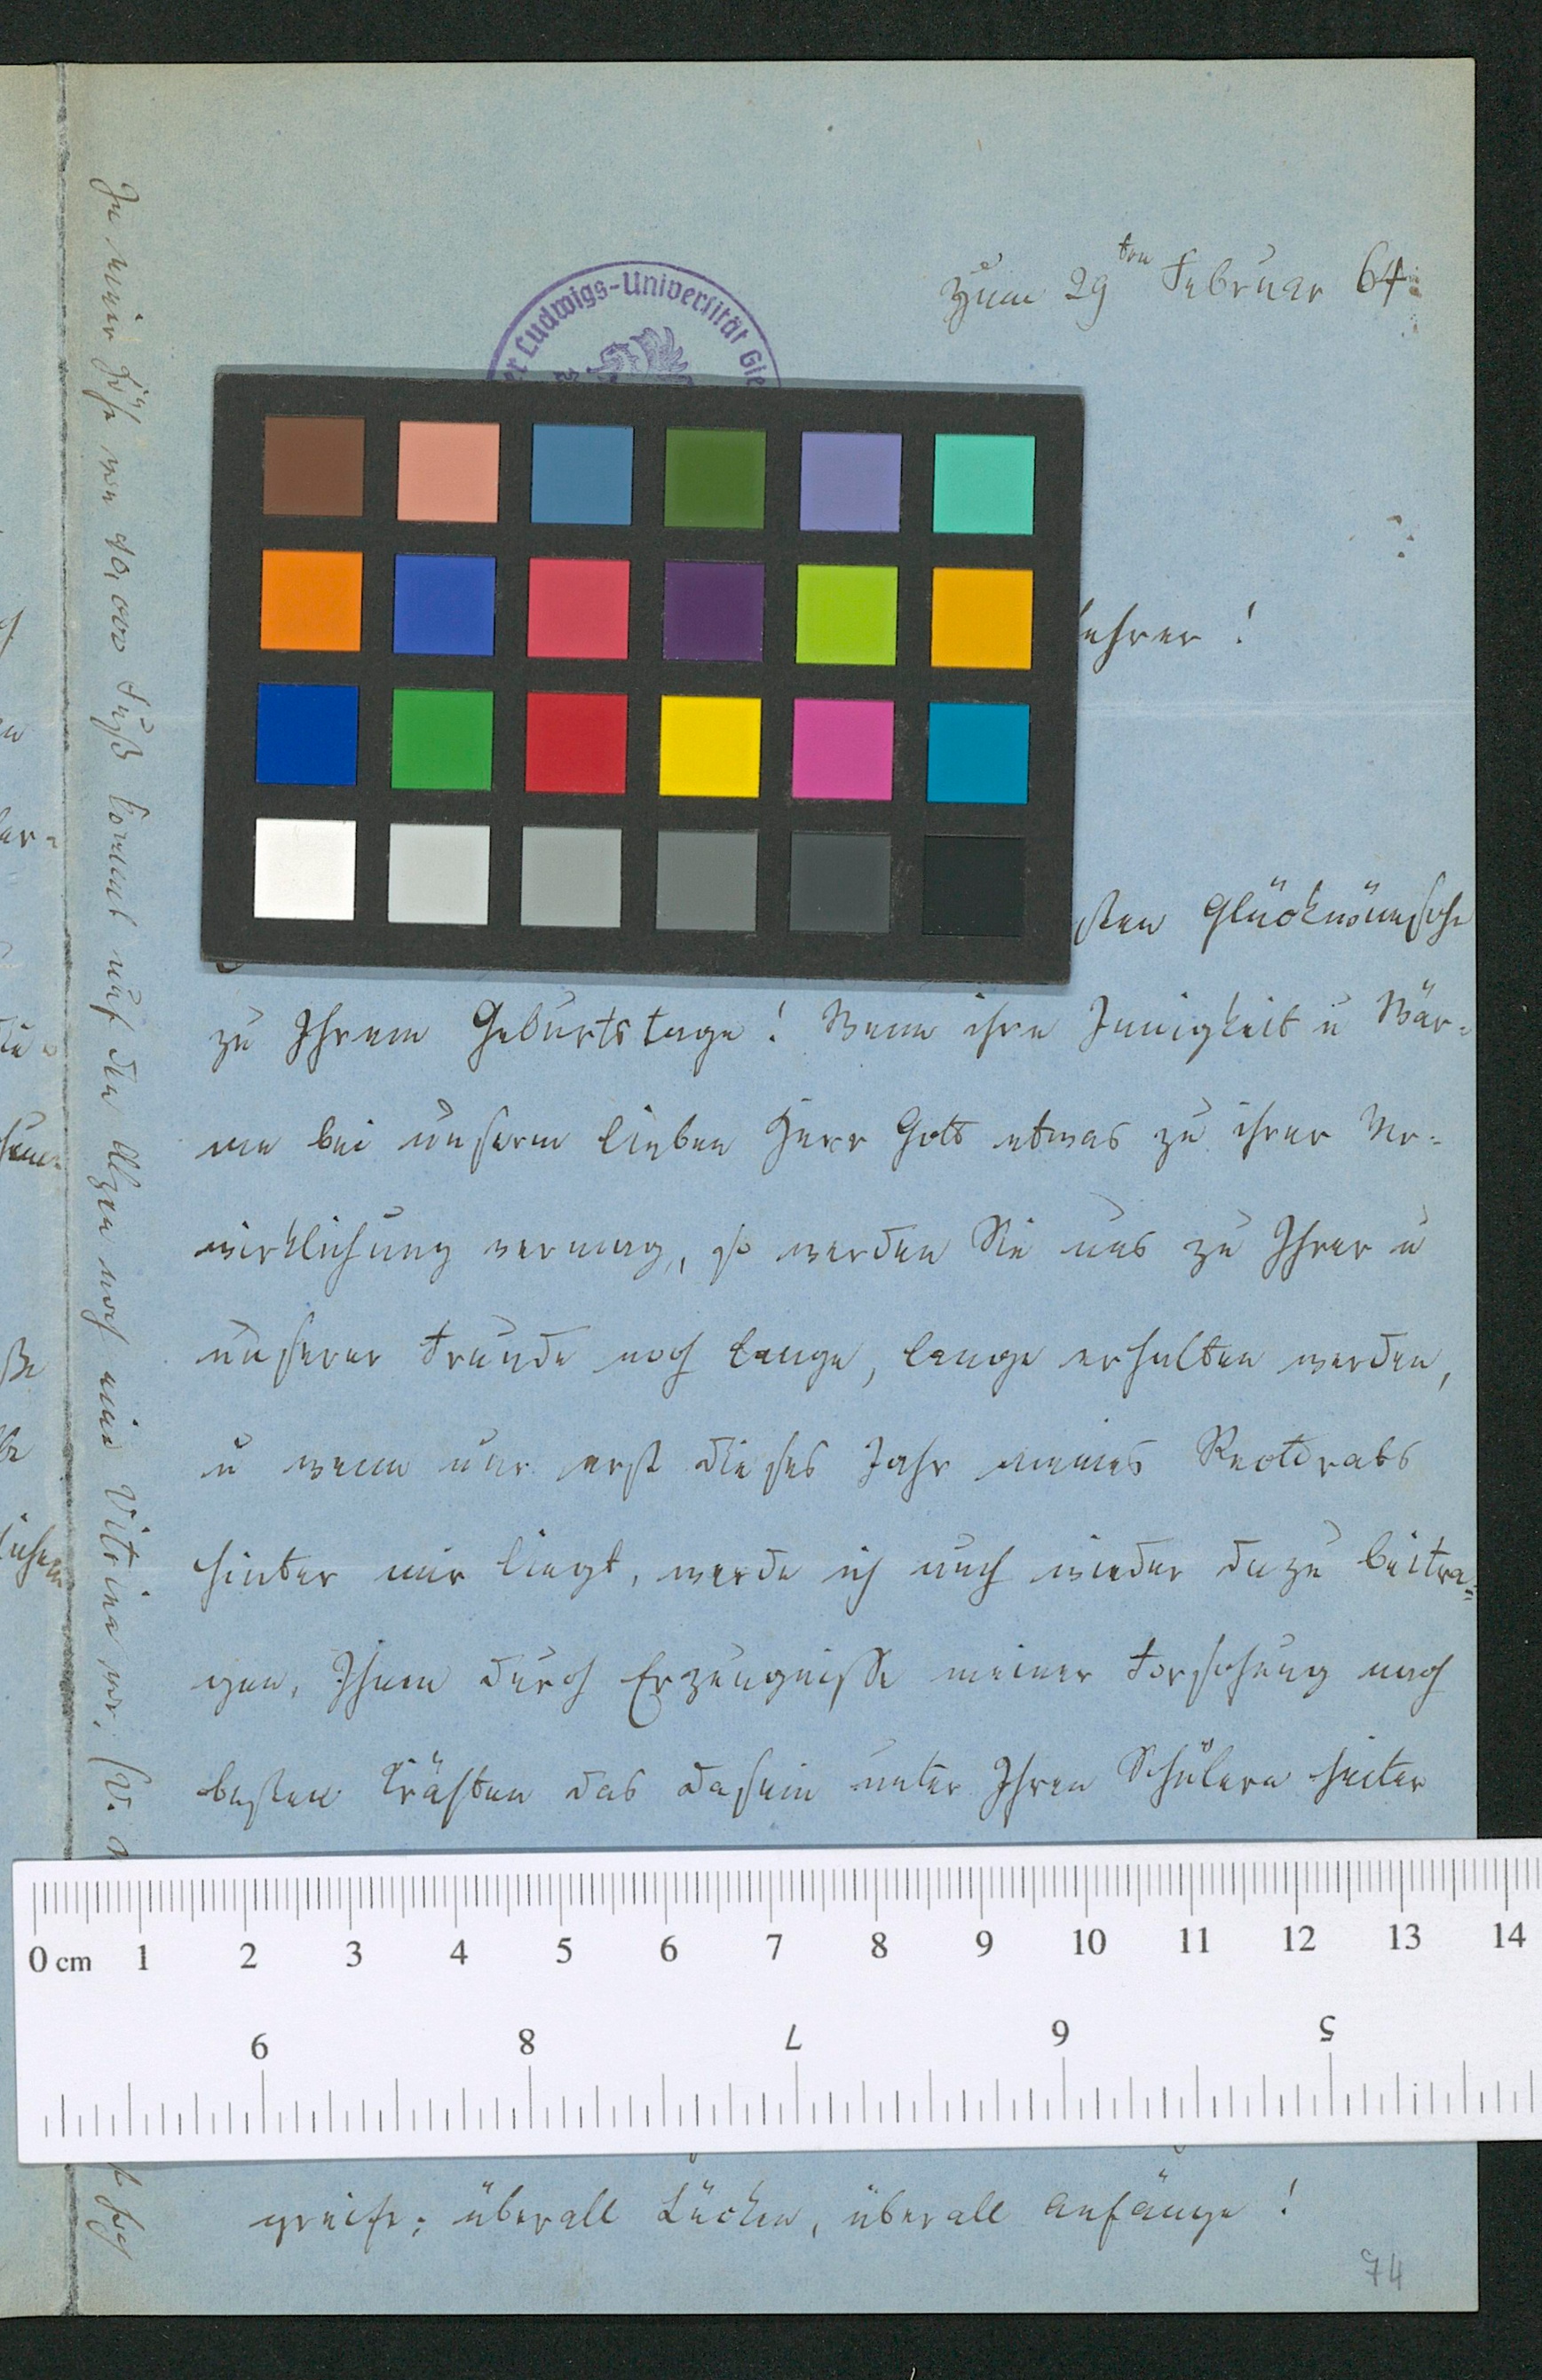 zum 29ten Februar 64.
er Ludwigs-Universität Gie
Lehrer!
sten Glückwünsche
zu Ihrem Geburtstage! Wenn ihre Innigkeit u Wär-
me bei unserem lieben Herr Gott etwas zu ihrer Ver-
wirklichung vermag, so werden Sie uns zu Ihrer u
unserer Freude noch lange, lange erhalten werden,
u wenn nur erst dieses Jahr meines Rectorats
hinter mir liegt, werde ich auch wieder dazu beitra-
gen, Ihnen durch Erzeugnisse meiner Forschung nach
besten Kräften das Dasein unter Ihren Schülern heiter
0 cm 1 2 3 4 5 6 7 8 9 10 11 12 13 14
9 8 7 6 5
greife; überall Lücken, überall Anfänge!
74
In einer Höhe von Fuß kommt auf den Alpen noch eine Vitrina vor, (V.